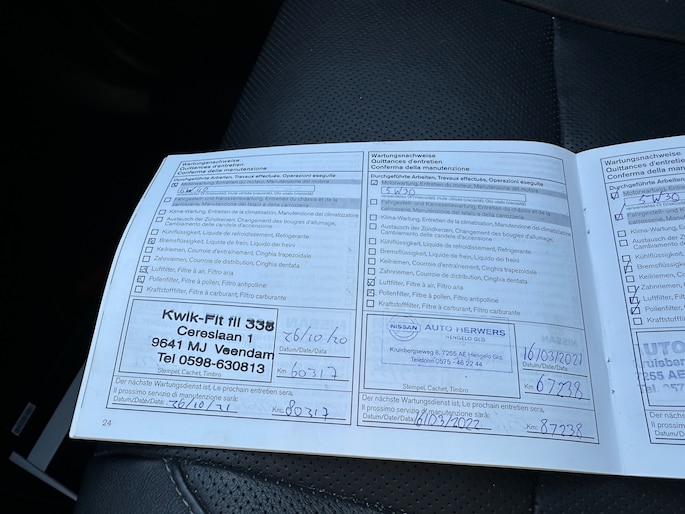 Wartungsnachweise
Quittances d'entretien
Conferma della manutenzione
Durchgeführte Arbeiten, Travaux effectués, Operazioni eseguite
Motorwartung, Entretien du moteur, Manutenzione del motore
Fahrgestell- und Karosseriewartung, Entretien du châssis et de la
carrosserie, Manutenzione del telaio e della carrozzeria
Klima-Wartung, Entretien de la climatisation, Manutenzione del climatizzatore
Austausch der Zündkerzen, Changement des bougies d'allumage,
Cambiamento delle candele d'accensione
Kühlflüssigkeit, Liquide de refroidissement, Refrigerante
Bremsflüssigkeit, Liquide de frein, Liquido dei freni
Keilriemen, Courroie d'entraînement, Cinghia trapezoidale
Zahnriemen, Courroie de distribution, Cinghia dentata
Luftfilter, Filtre à air, Filtro aria
Pollenfilter, Filtre à pollen, Filtro antipolline
Kraftstofffilter, Filtre à carburant, Filtro carburante
Kwik-Fit fil 338
Cereslaan 1
9641 MJ Veendam
Tel 0598-630813
26/10/20
Datum/Date/Data
Km: 60317
Stempel, Cachet, Timbro
Der nächste Wartungsdienst ist, Le prochain entretien sera,
Il prossimo servizio di manutenzione sarà:
Datum/Date/Data: 26/10/21 Km: 80317
24
Wartungsnachweise
Quittances d'entretien
Conferma della manutenzione
Durchgeführte Arbeiten, Travaux effectués, Operazioni eseguite
Motorwartung, Entretien du moteur, Manutenzione del motore
5W30
Fahrgestell- und Karosseriewartung, Entretien du châssis et de la
carrosserie, Manutenzione del telaio e della carrozzeria
Klima-Wartung, Entretien de la climatisation, Manutenzione del climatizzatore
Austausch der Zündkerzen, Changement des bougies d'allumage,
Cambiamento delle candele d'accensione
Kühlflüssigkeit, Liquide de refroidissement, Refrigerante
Bremsflüssigkeit, Liquide de frein, Liquido dei freni
Keilriemen, Courroie d'entraînement, Cinghia trapezoidale
Zahnriemen, Courroie de distribution, Cinghia dentata
Luftfilter, Filtre à air, Filtro aria
Pollenfilter, Filtre à pollen, Filtro antipolline
Kraftstofffilter, Filtre à carburant, Filtro carburante
NISSAN AUTO HERWERS
HENGELO GLD.
Kruisbergseweg 8, 7255 AE Hengelo Gld.
Telefoon 0575 - 46 22 44
16/03/2021
Datum/Date/Data
Km: 67238
Stempel, Cachet, Timbro
Der nächste Wartungsdienst ist, Le prochain entretien sera,
Il prossimo servizio di manutenzione sarà:
Datum/Date/Data: 16/03/2022 Km: 87238
Wartungsnachweise
Quittances d'entretien
Conferma della manutenzione
Durchgeführte Arbeiten
Motorwartung, Entretien
5W30
Fahrgestell- und Ka
Klima-Wartung, E
Austausch der Zü
Kühlflüssigkeit
Bremsflüssig
Keilriemen,
Zahnriemen
Luftfilter, F
Pollenfilter
Kraftstoff
UTO
ruisberg
255 AE
Stempel
Der nächste
Il prossimo
Datum/Date